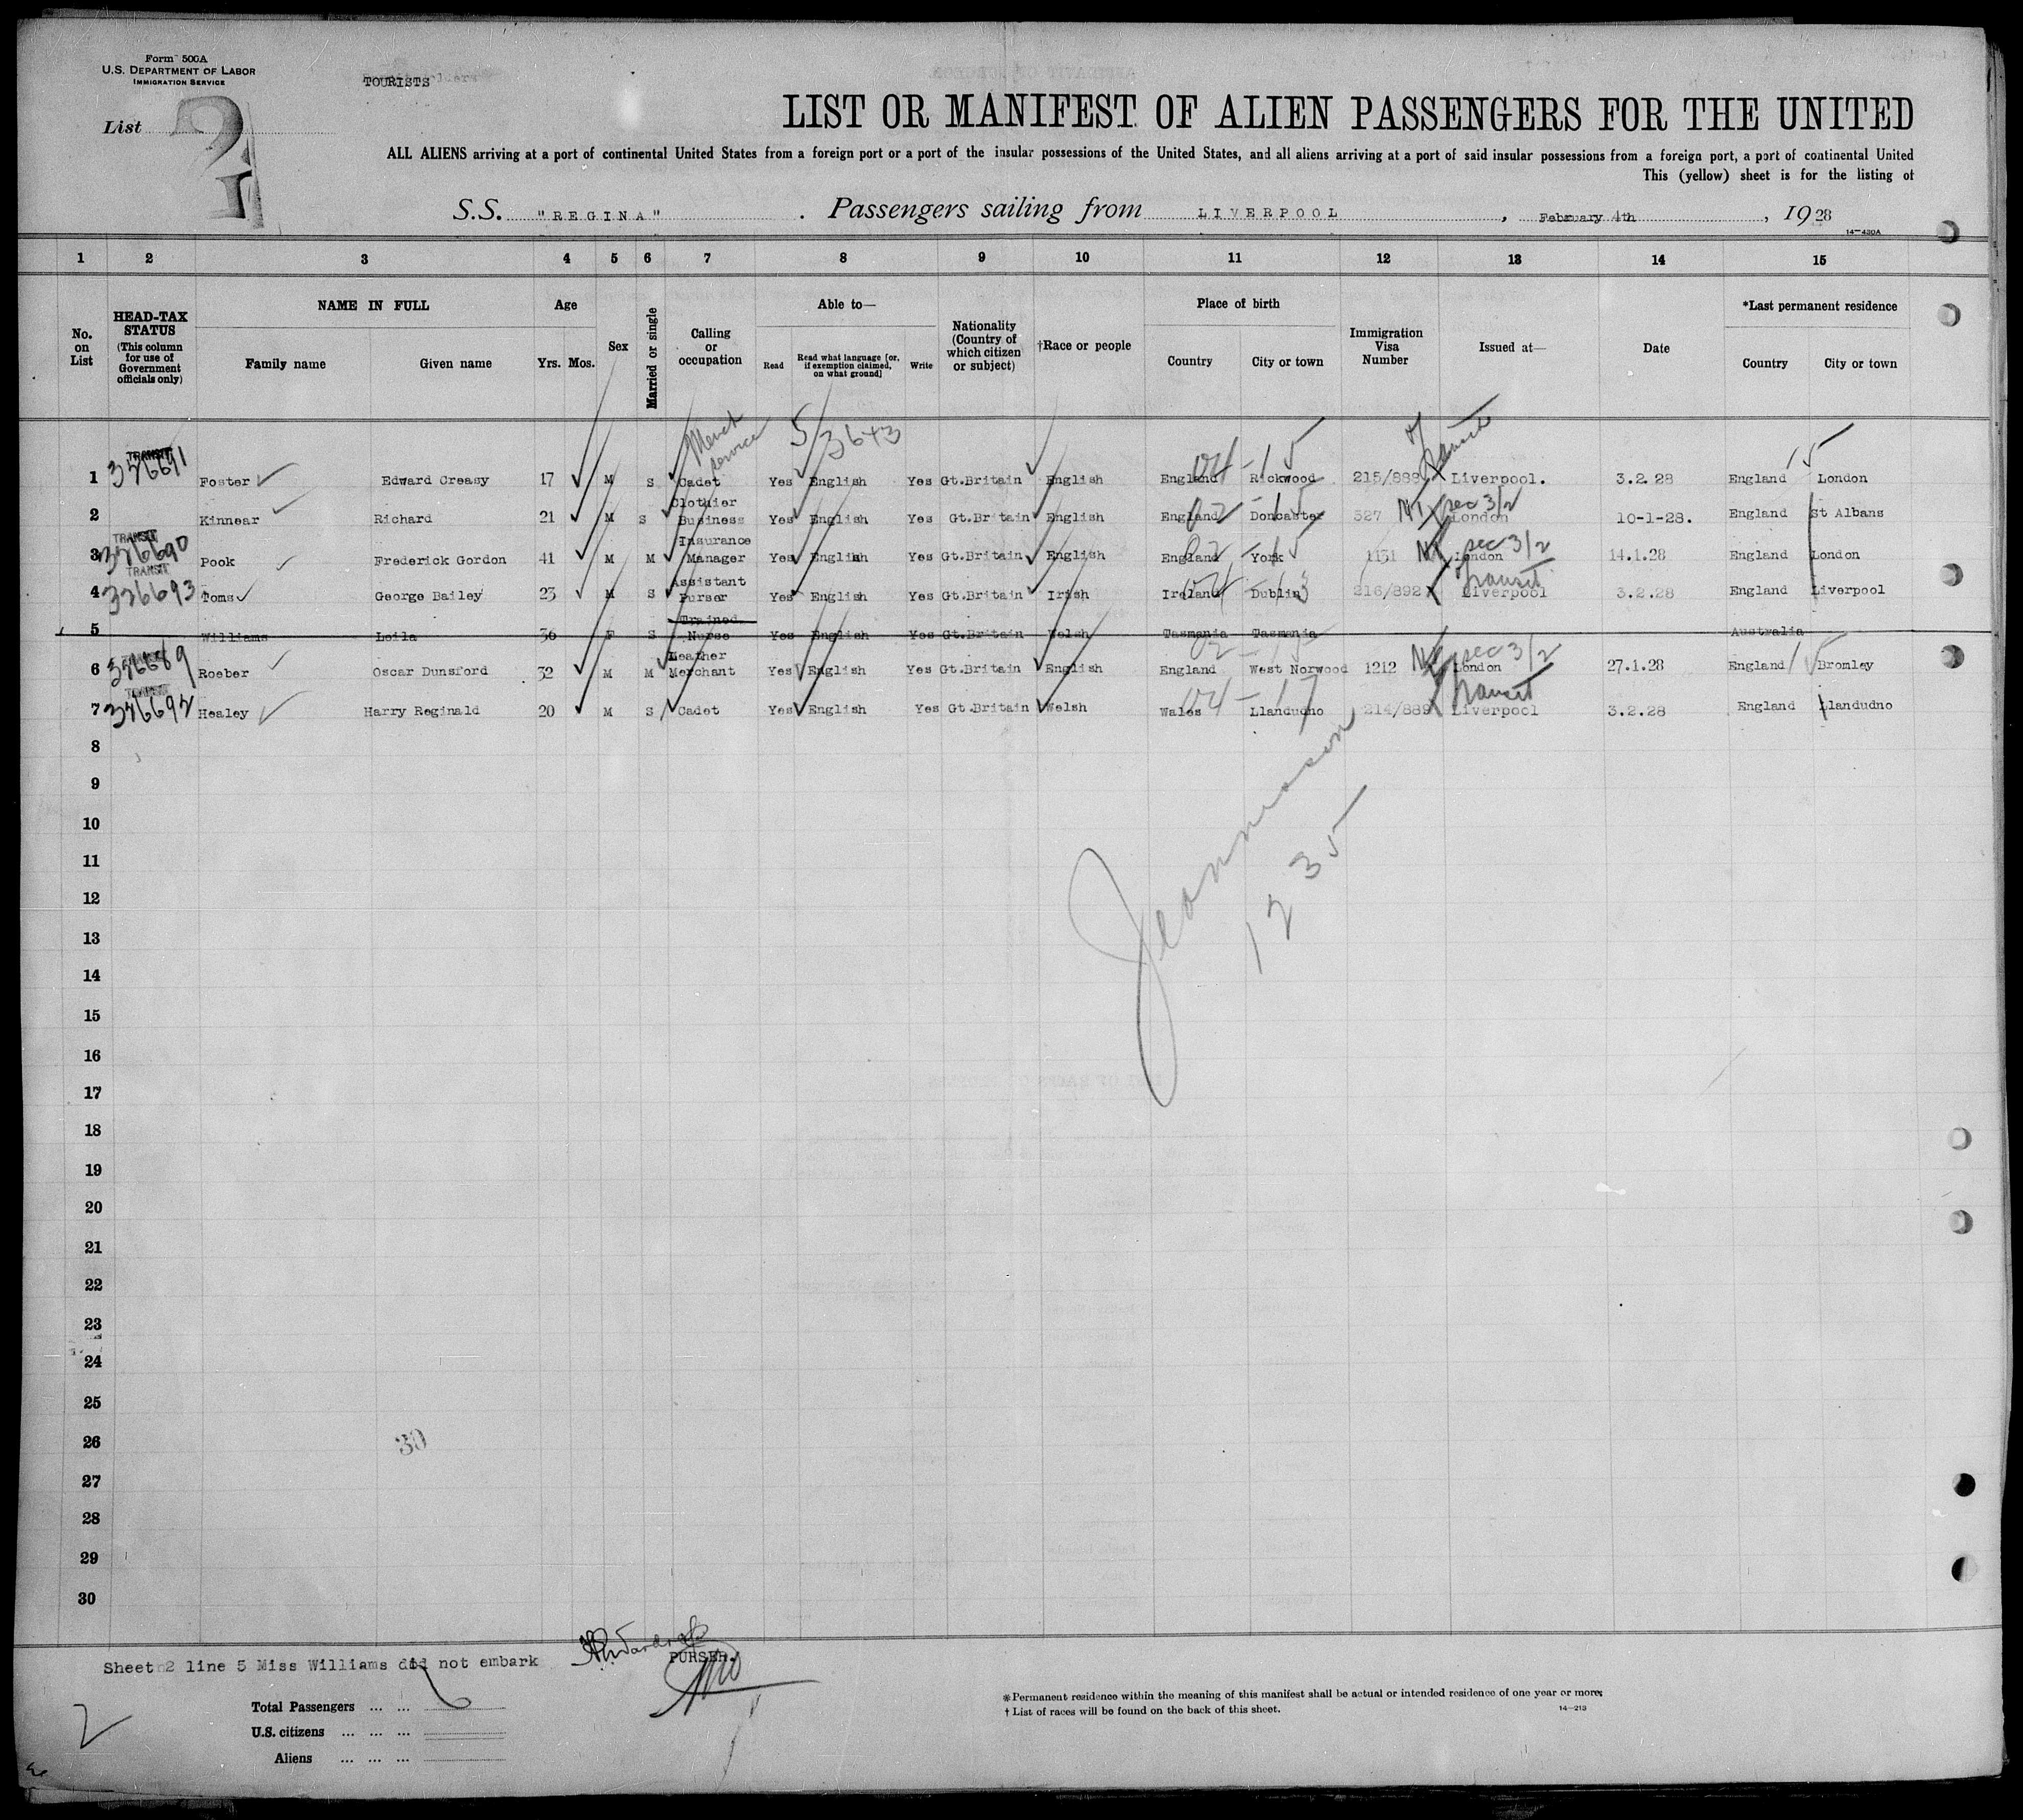 Form 500A
U.S. DEPARTMENT OF LABOR
IMMIGRATION SERVICE
TOURISTS
List 2
1
LIST OR MANIFEST OF ALIEN PASSENGERS FOR THE UNITED
ALL ALIENS arriving at a port of continental United States from a foreign port or a port of the insular possessions of the United States, and all aliens arriving at a port of said insular possessions from a foreign port, a port of continental United
This (yellow) sheet is for the listing of
S.S. "REGINA" . Passengers sailing from LIVERPOOL , February 4th , 1928
14-430A
1 2 3 4 5 6 7 8 9 10 11 12 13 14 15
No. on List
HEAD-TAX STATUS (This column for use of Government officials only)
NAME IN FULL
Family name Given name
Age
Yrs. Mos.
Sex
Married or single
Calling or occupation
Able to—
Read Read what language [or, if exemption claimed, on what ground] Write
Nationality (Country of which citizen or subject)
†Race or people
Place of birth
Country City or town
Immigration Visa Number
Issued at—
Date
*Last permanent residence
Country City or town
Merch service 5/3643
04-15 Transit 15
1 TRANSIT 376691 Foster Edward Creasy 17 M S Cadet Yes English Yes Gt.Britain English England Rickwood 215/888 Liverpool. 3.2.28 England London
2 Kinnear Richard 21 M S Clothier Business Yes English Yes Gt.Britain English England 02-15 Doncaster 527 NI sec 3/2 London 10-1-28. England St Albans
3 TRANSIT 376690 Pook Frederick Gordon 41 M M Insurance Manager Yes English Yes Gt.Britain English England 02-15 York 1131 NI sec 3/2 London 14.1.28 England London
4 TRANSIT 376693 Toms George Bailey 23 M S Assistant Purser Yes English Yes Gt.Britain Irish Ireland 04-13 Dublin 216/892 Transit Liverpool 3.2.28 England Liverpool
5 Williams Leila 36 F S Trained Nurse Yes English Yes Gt.Britain Welsh Tasmania Tasmania Australia
6 376689 Roeber Oscar Dunsford 32 M M Leather Merchant Yes English Yes Gt.Britain English England 02-15 West Norwood 1212 NI sec 3/2 London 27.1.28 England 15 Bromley
7 TRANSIT 376692 Healey Harry Reginald 20 M S Cadet Yes English Yes Gt.Britain Welsh Wales 04-17 Llandudno 214/889 Transit Liverpool 3.2.28 England Llandudno
8
9
10
11
12
13
14
15
16
17
18
19
20
21
22
23
24
25
26
27
28
29
30
1235
30
Sheet 2 line 5 Miss Williams did not embark
PURSER.
2
Total Passengers ... ...
U.S. citizens ... ... ...
Aliens ... ... ...
*Permanent residence within the meaning of this manifest shall be actual or intended residence of one year or more.
† List of races will be found on the back of this sheet.
14-213